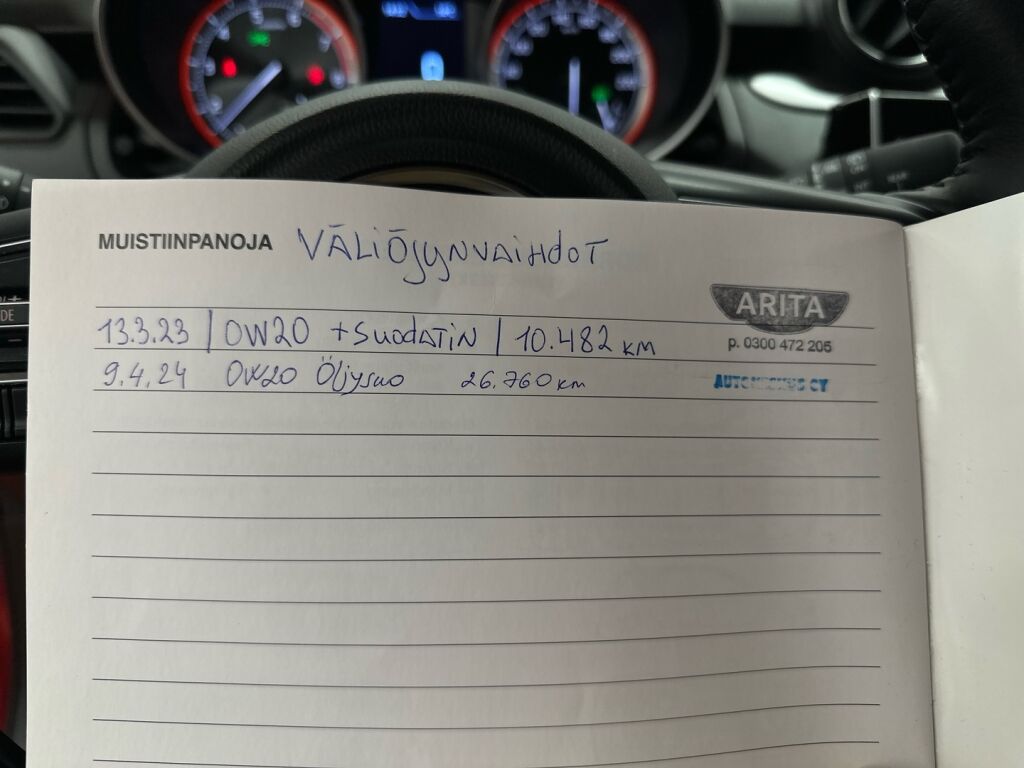 MUISTIINPANOJA VÄLIÖJYNVAIHDOT
ARITA
13.3.23 | 0W20 +SUODATIN | 10.482 KM
p. 0300 472 205
9.4.24 0W20 Öljysuo 26.760 km
OY